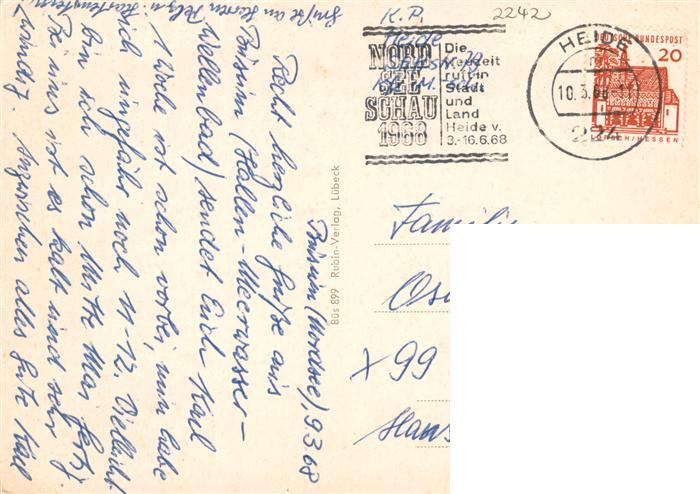 Grüße an
Büsum (Nordsee), 9.3.68
Recht herzliche Grüße aus
Büsum (Hallen-Meerwasser-
Wellenbad) sendet Euch Karl
1 Woche ist schon vorbei, nun habe
ich ungefähr noch 11-12. Vielleicht
bin ich schon Mitte Mai fertig
Bei uns ist es kalt und sehr
windig Inzwischen alles Gute Karl
Büs 899 Rubin-Verlag, Lübeck
K.P.
2242
Heide
NORD
SEE
SCHAU
1968
Die
Neuzeit
ruft in
Stadt
und
Land
Heide v.
3.-16.6.68
HEIDE
10.3.68
224
DEUTSCHE BUNDESPOST
20
LORSCH/HESSEN
Familie
Os
X 99
Hans